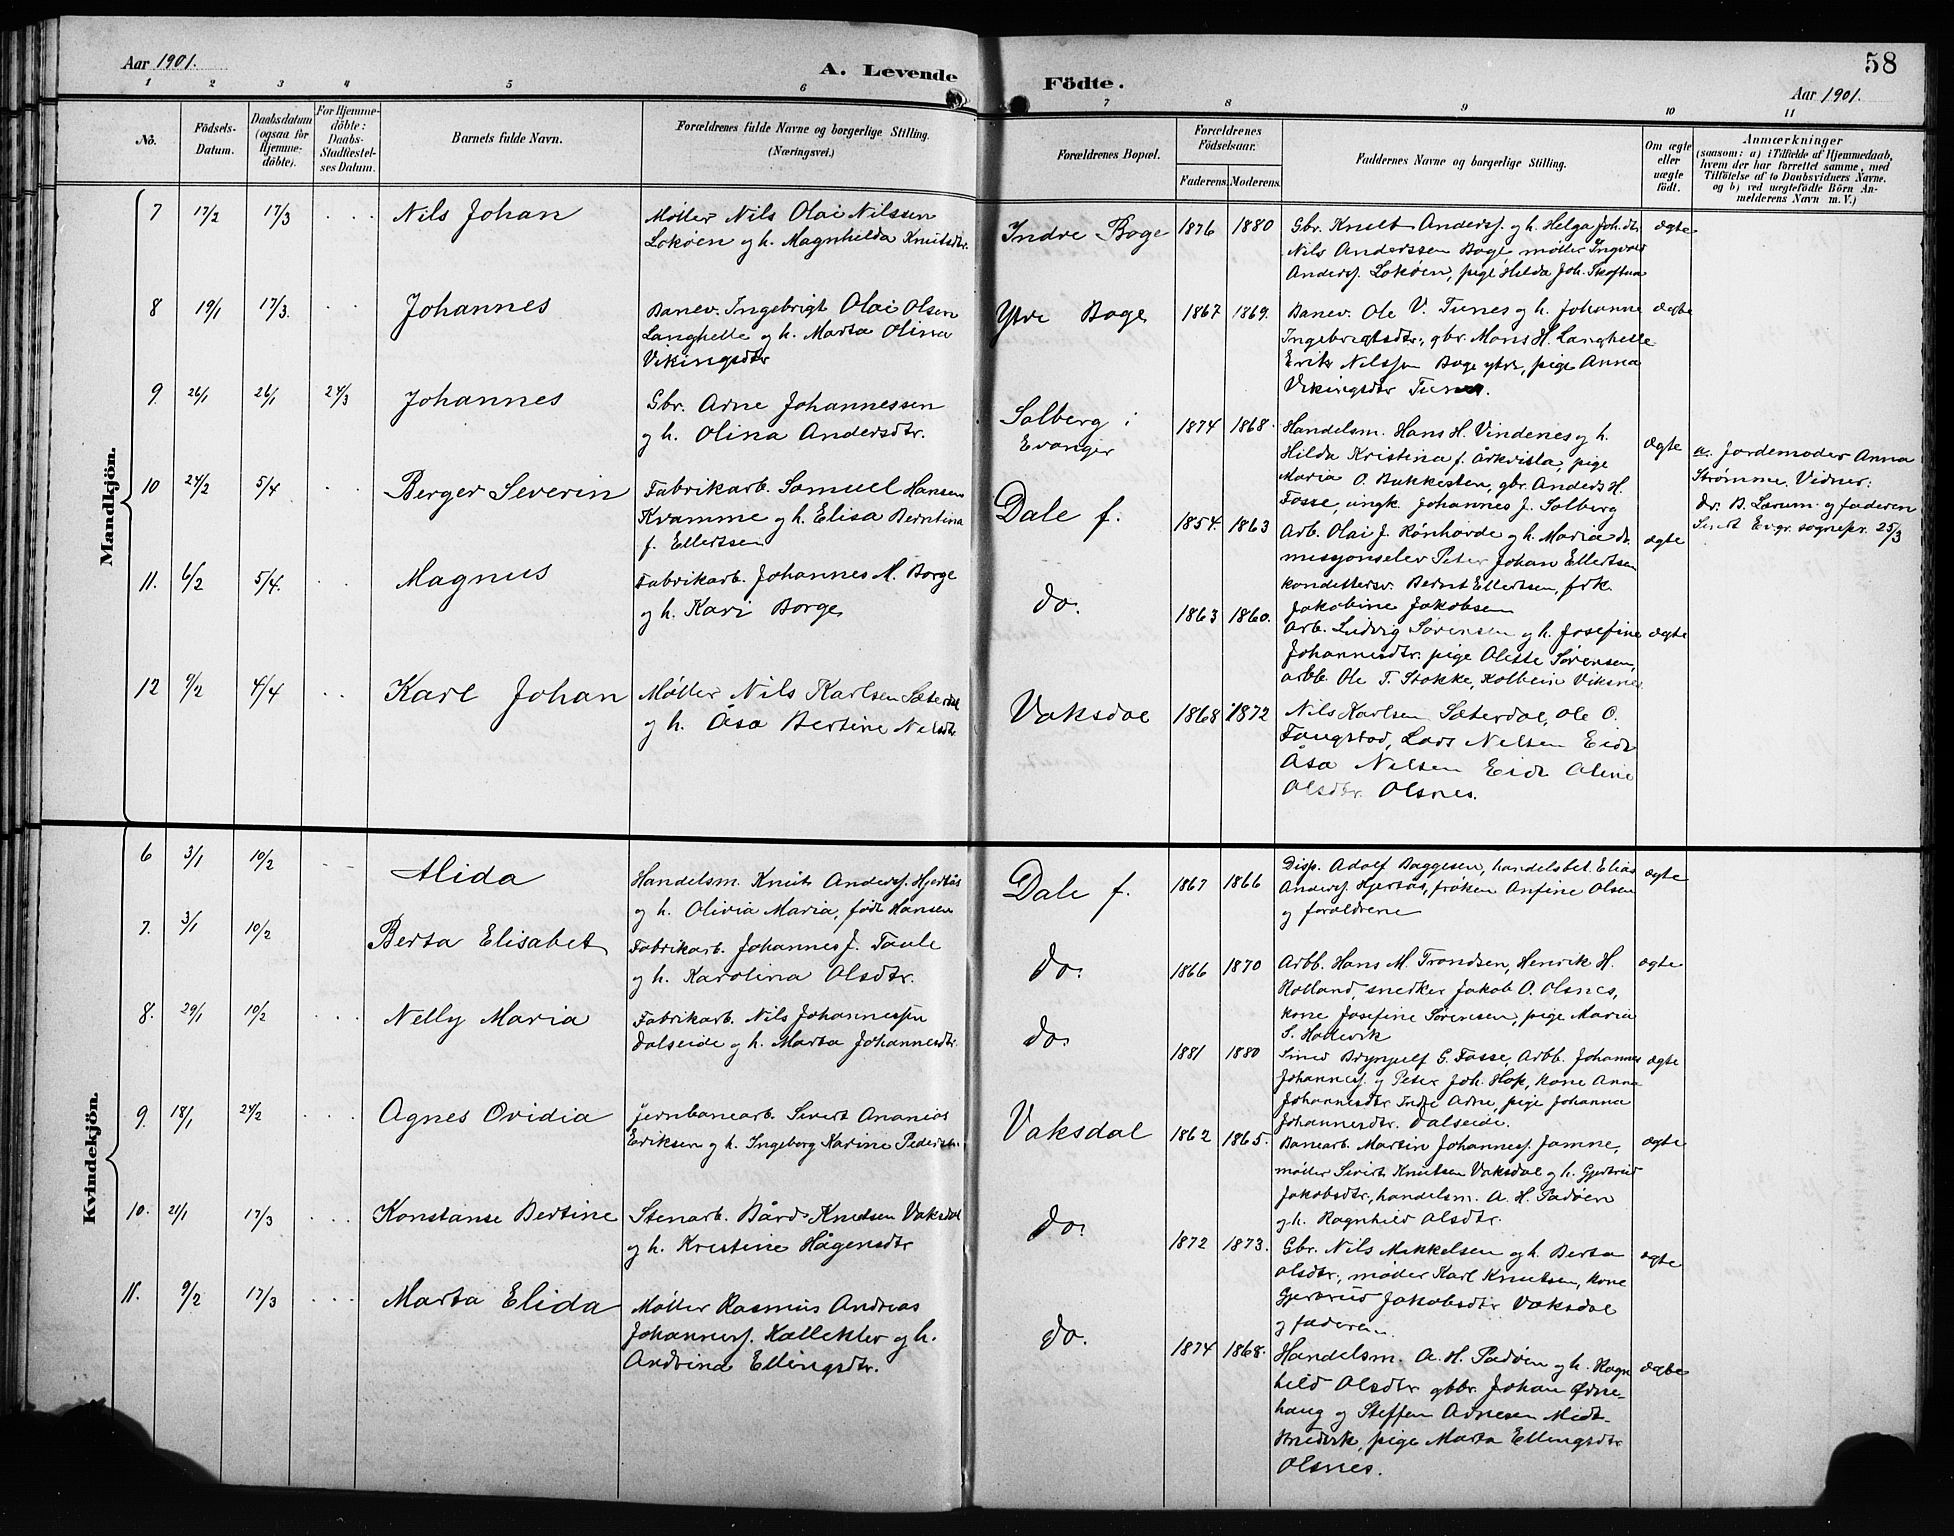 58
Aar 1901.
A. Levende Födte.
Aar 1901.
1 2 3 4 5 6 7 8 9 10 11
No.
Födsels-
Datum.
Daabsdatum
(ogsaa for
Hjemme-
döbte).
For Hjemme-
döbte:
Daabs-
Stadfæstel-
ses Datum.
Barnets fulde Navn.
Forældrenes fulde Navne og borgerlige Stilling.
(Næringsvei.)
Forældrenes Bopæl.
Forældrenes
Födselsaar.
Faderens. Moderens.
Faddernes Navne og borgerlige Stilling.
Om ægte
eller
uægte
født.
Anmærkninger
(saasom: a) i Tilfælde af Hjemmedaab,
hvem der har forrettet samme, med
Tilföielse af to Daabsvidners Navne.
og b) ved uægtefödte Börn An-
melderens Navn m. V.)
Mandkjön.
7 17/2 17/3 Nils Johan
Møller Nils Olai Nilssen
Lokøen og h. Magnhilda Knutsdtr.
Indre Boge 1876 1880
Gbr. Knut Anders. og h. Helga Joh.dtr.
Nils Anderssen Boge møller Ingvald
Anders. Lokøen, pige Hilda Joh. Skoftua
ægte
8 19/1 17/3. Johannes
Banev. Ingebrigt Olai Olsen
Langhelle og h. Marta Olina
Vikingsdtr
Ytre Boge 1867 1869.
Banev. Ole V. Tunes og h. Johanne
Ingebrigtsdtr., gbr. Mons H. Langhelle
Erik Nilssen Boge ytre, pige Anna
Vikingsdtr Tunes.
ægte
9. 26/1 26/1 24/3 Johannes
Gbr. Arne Johannessen
og h. Olina Andersdtr.
Solberg i
Evanger
1874 1868.
Handelsm. Hans H. Vindenes og h.
Hilda Kristina f. Årkvisla, pige
Maria O. Bukkesten, gbr. Anders H.
Fosse, ungk. Johannes J. Solberg
ægte
a. Jordemoder Anna
Strømme. Vidner:
dr. B. Lærum og faderen
Sendt Evgr. sognepr. 25/3
10 24/2 5/4 Berger Severin
Fabrikarb. Samuel Hansen
Kvamme og h. Elisa Berntina
f. Ellertsen
Dale f. 1854. 1863
Arb. Olai J. Rønharde og h. Maria dr.
missjonselev Peter Johan Ellertsen
konditersv. Bernt Ellertsen, frk.
Jakobine Jakobsen
ægte
11. 6/2 5/4. Magnus
Fabrikarb. Johannes M. Borge
og h. Kari Borge
do. 1863 1860.
Arb. Ludvig Sørensen og h. Josefine
Johannesdtr. pige Oleste Sørensen,
arbb. Ole T. Stokke, Kolbein Viksnes
ægte
12 9/2 4/4 Karl Johan
Møller Nils Karlsen Sæterdal
og h. Åsa Bertine Nelsdtr
Vaksdal 1868 1872
Nils Karlsen Sæterdal, Ole O.
Fangstad, Lars Nelsen Eide
Åsa Nelsen Eide Oline
Olsdtr. Olsnes.
Kvindekjön.
6 3/1 10/2 Alida
Handelsm. Knut Anders. Hjertås
og h. Olivia Maria, født Hansen
Dale f. 1867 1866
Disp. Adolf Baggesen, handelsbet. Elias
Anders. Hjertås, frøken Anfine Olsen
og forældrene
ægte
7. 3/1 10/2 Berta Elisabet
Fabrikarb. Johannes J. Taule
og h. Karolina Olsdtr.
do. 1866 1870
Arbb. Hans M. Trondsen, Henrik H.
Holland, snedker Jakob O. Olsnes,
kone Josefine Sørensen, pige Maria
S. Hollevik
ægte
8. 29/1 10/2 Nelly Maria
Fabrikarb. Nils Johannessen
Dalseide og h. Marta Johannesdtr.
do. 1881 1880
Smed Brynjulf G. Fosse, Arbb. Johannes
Johannes. og Peter Joh. Hop, kone Anna
Johannesdtr Indre Arne, pige Johanna
Johannesdtr. Dalseide.
ægte
9. 18/1 24/2 Agnes Ovidia
Jernbanearb. Sivert Ananias
Eriksen og h. Ingeborg Karine Pedersdtr.
Vaksdal 1862 1865.
Banearb. Martin Johannes. Jamne,
møller Sivert Knutsen Vaksdal og h. Gjertrud
Jakobsdtr, handelsm. A. H. Padøen
og h. Ragnhild Olsdtr.
ægte
10. 21/1 17/3 Konstanse Bertine
Stenarb. Bård Knutsen Vaksdal
og h. Kristine Hågensdtr
do. 1872 1873.
Gbr. Nils Mikkelsen og h. Berta
Olsdtr., møller Karl Knutsen, kone
Gjertrud Jakobsdtr Vaksdal
og faderen.
ægte
11. 9/2 17/3 Marta Elida
Møller Rasmus Andreas
Johannes. Kalleklev og h.
Andrina Ellingsdtr.
do. 1874 1868.
Handelsm. A. H. Padøen og h. Ragn
hild Olsdtr gbbr. Johan Ødne-
haug og Steffen Arnesen Midt-
hredvik, pige Marta Ellingsdtr
Olsnes.
ægte